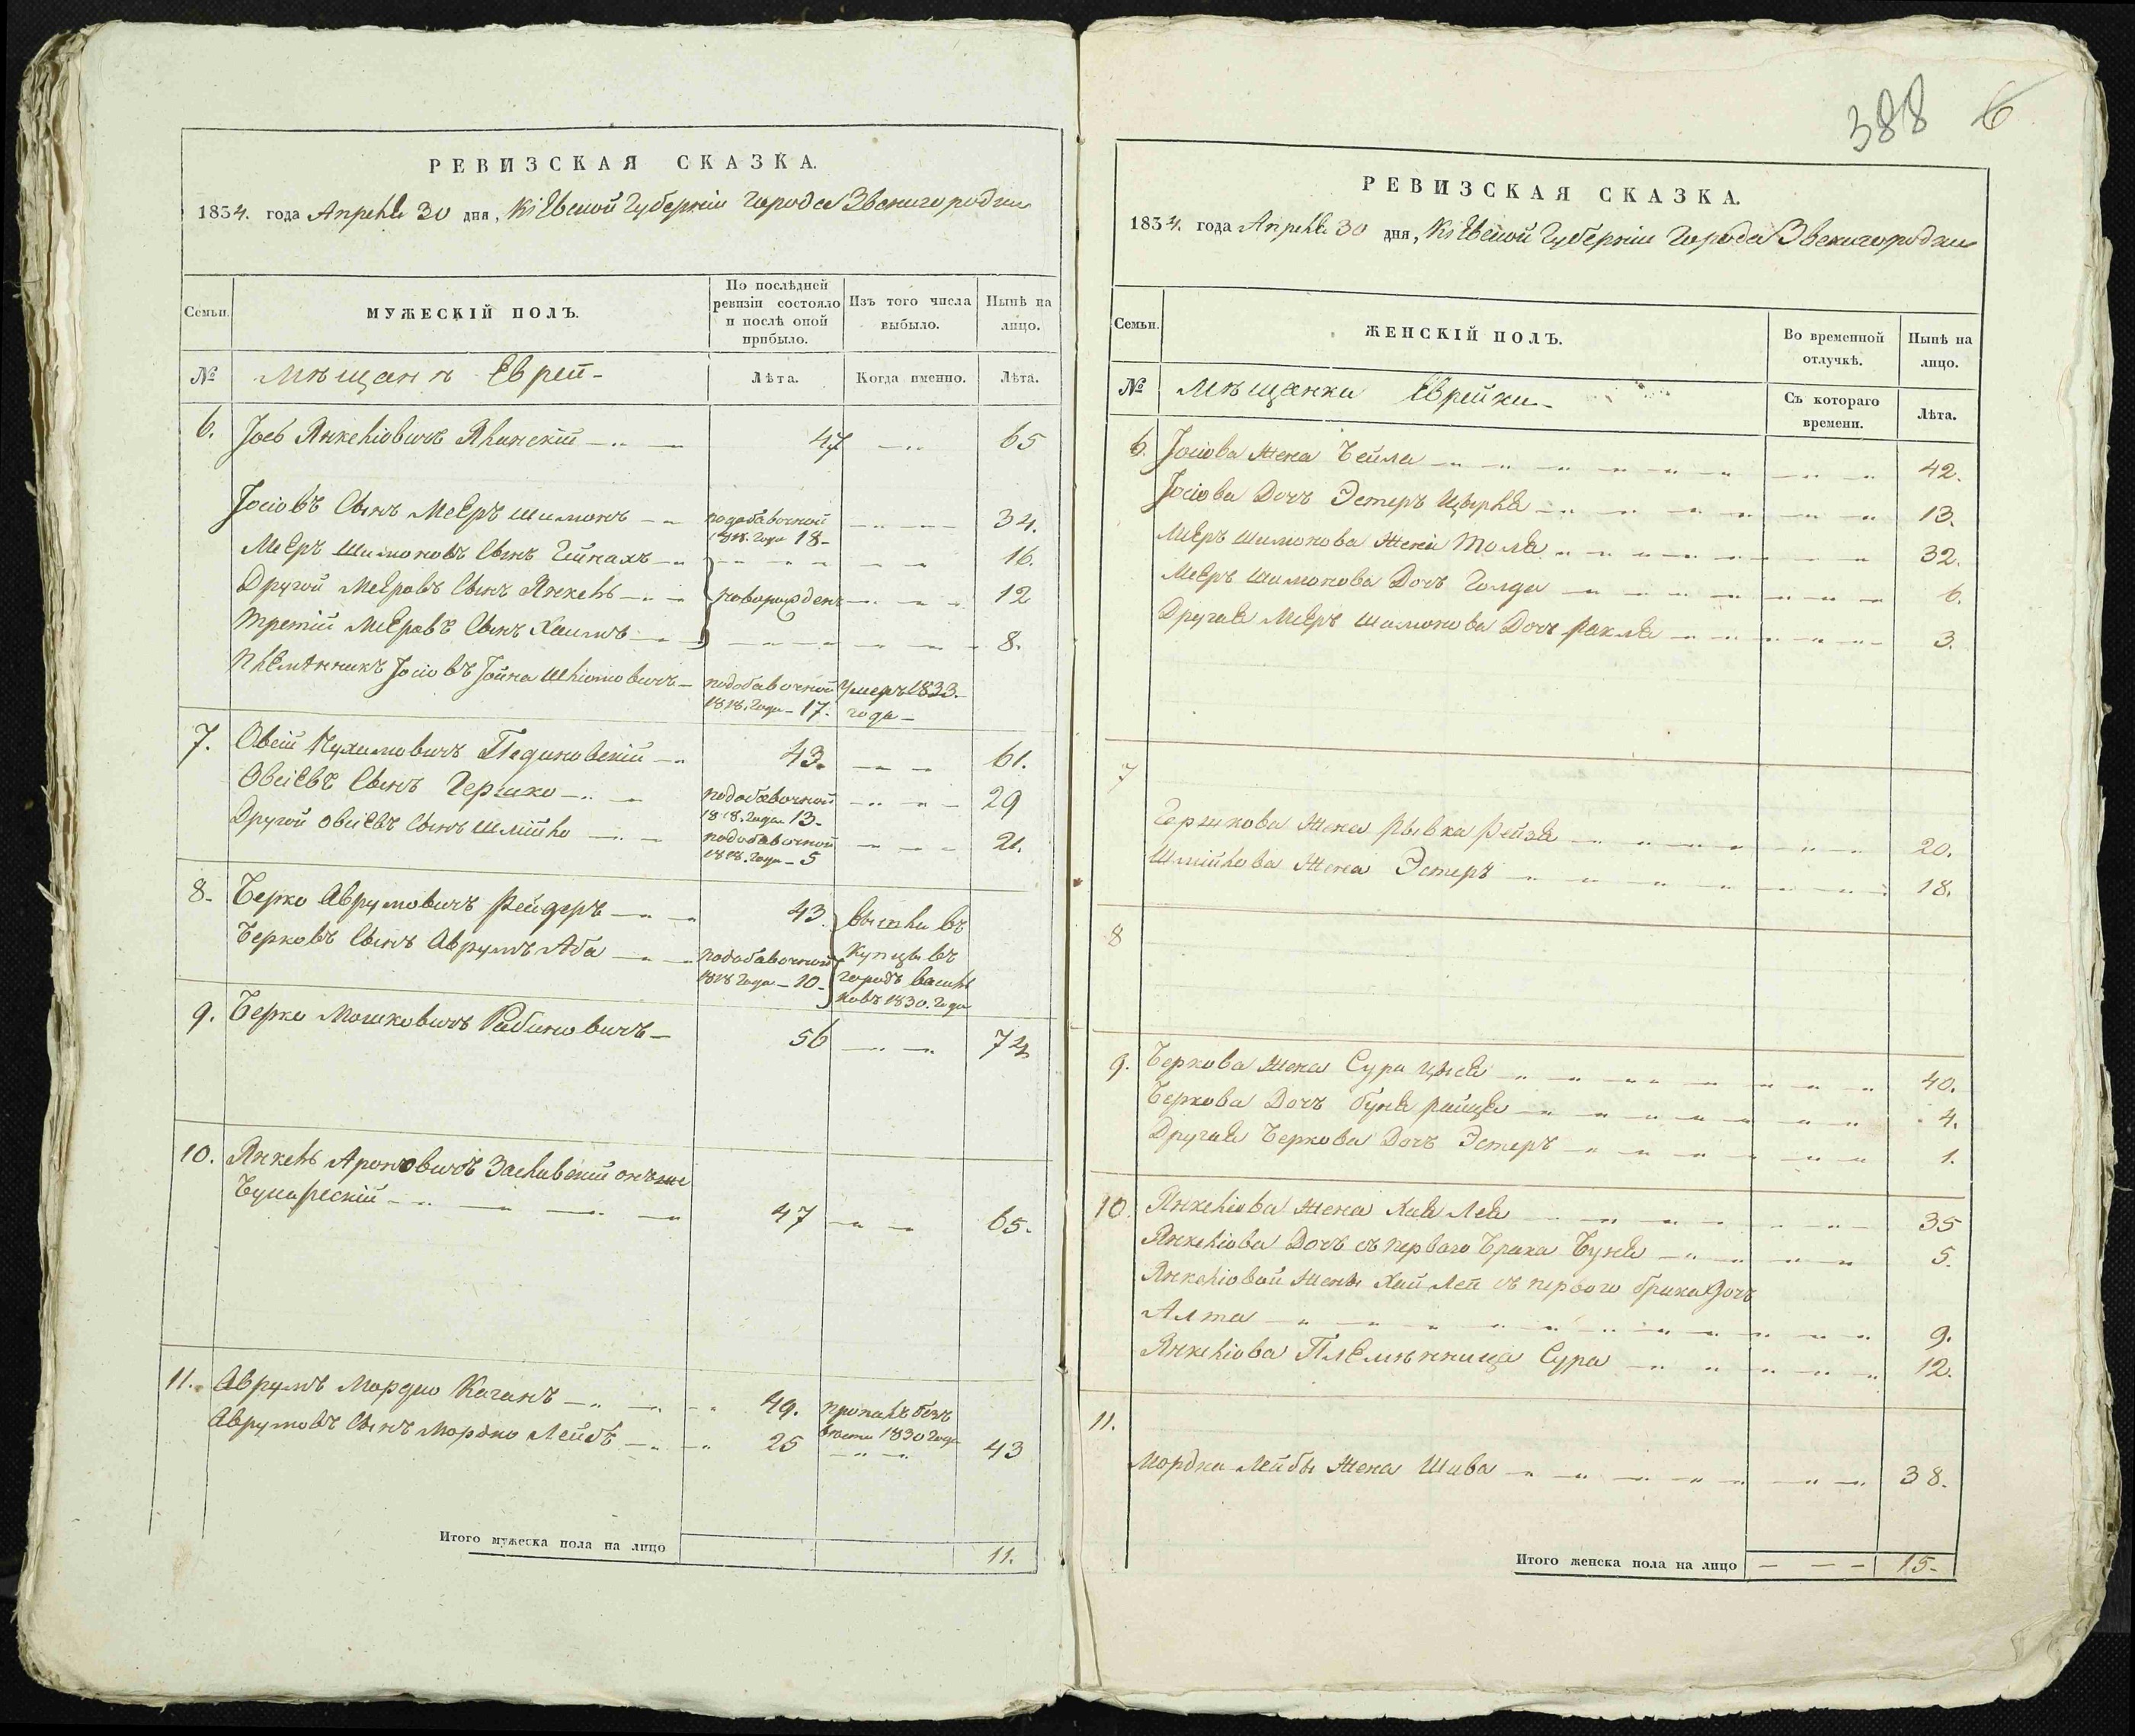 РЕВИЗСКАЯ СКАЗКА.
1834. года Апреля 30 дня, Кіевской Губерніи города Звенигородки
Семьи.
МУЖЕСКІЙ ПОЛЪ.
По послѣдней ревизіи состояло и послѣ оной прибыло.
Изъ того числа выбыло.
Нынѣ на лицо.
№
Мѣщанъ Еврей
Лѣта.
Когда именно.
Лѣта.
6. Іось Янкеліовичъ 47 65
Іосіовъ Сынъ Меєръ Шимонъ подобавочной 1818. Года 18 34.
Меєръ Шимоновъ Сынъ 16.
Другой Меєровъ Сынъ Янкель новорожден 12
Третій Меєровъ Сынъ Хаимъ 8.
Племянникъ Іосіовъ Іойна Шліомовичъ подобавочной 1818. Года 17. умеръ 1833. года
7. Овсій Нухимовичъ 43. 61.
Овсіевъ Сынъ Гершко подобавочной 1818. Года 13 29
Другой Овсіевъ Сынъ Шмійло подобавочной 1818. Года 5 21.
8. Берко Аврумовичъ Рейдеръ 43 вышли въ
Берковъ Сынъ Аврумъ Аба подобавочной 1818 Года 10 купцы въ городъ Васильковъ 1830. Года
9. Берко Мошковичъ Рабиновичъ 56 74
10. Янкель Ароновичъ Заславскій онъ же
47 65.
11. Аврумъ Мордко Каганъ 49. пропалъ безъ вести 1830 Года
Аврумовъ Сынъ Мордко Лейбъ 25 43
Итого мужеска пола на лицо 11.
388 6
РЕВИЗСКАЯ СКАЗКА.
1834. года Апреля 30 дня, Кіевской Губерніи Города Звенигородки
Семьи.
ЖЕНСКІЙ ПОЛЪ.
Во временной отлучкѣ.
Нынѣ на лицо.
№
Мѣщанки Еврейки
Съ котораго времени.
Лѣта.
6. Іосіова Жена Бейла 42.
Іосіова Дочъ Эстеръ Цырля 13.
Меєръ Шимонова Жена 32.
Меєръ Шимонова Дочъ Голда 6.
Другая Меєръ Шимонова Дочъ Рахля 3.
7
Гершкова Жена Рывка Рейзя 20.
Шмійлова Жена Эстеръ 18.
8
9. Беркова Жена Сура 40.
Беркова Дочъ Буня 4.
Другая Беркова Дочъ Эстеръ 1.
10 Янкеліова Жена Хая Лея 35
Янкеліова Дочъ съ первого Брака Буня 5.
Янкеліовой Жены Хаи Леи съ первого брака Дочъ
Алта 9.
Янкеліова Племѣнница Сура 12.
11.
Мордка Лейбы Жена Шива 38.
Итого женска пола на лицо 15.